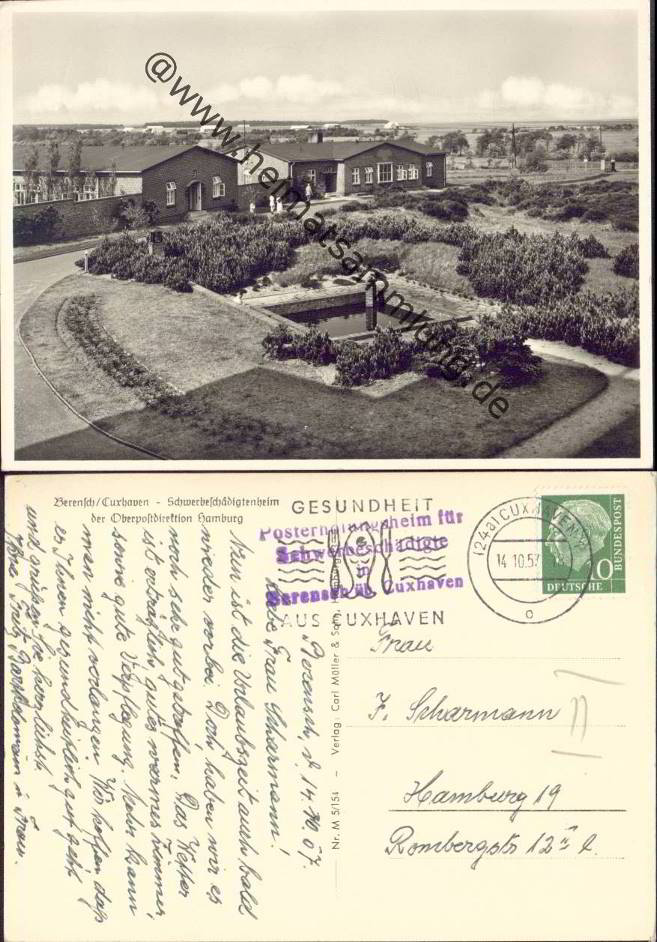 @www.heimatsammlung.de
Berensch/Cuxhaven - Schwerbeschädigtenheim
der Oberpostdirektion Hamburg
GESUNDHEIT
AUS CUXHAVEN
Posterholungsheim für
Schwerbeschädigte
in
Berensch üb. Cuxhaven
(24a) CUXHAVEN
14.10.57
o
10
DEUTSCHE
BUNDESPOST
Nr. M 5/154 – Verlag: Carl Müller &
Berensch, d 14. 10. 57.
Liebe Frau Scharmann!
Nun ist die Urlaubszeit auch bald
wieder vorbei. Doch haben wir es
noch sehr gut getroffen. Das Wetter
ist erträglich, gutes warmes Zimmer,
sowie gute Verpflegung. Mehr kann
man nicht verlangen. Wir hoffen, daß
es Ihnen gesundheitlich gut geht
und grüßen Sie herzlichst
Ihre Fritz u. Frau.
Frau
F. Scharmann
Hamburg 19
Rombergstr 12